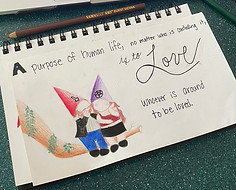 A purpose of human life, no matter who is controlling it,
is to Love
whoever is around
to be loved.